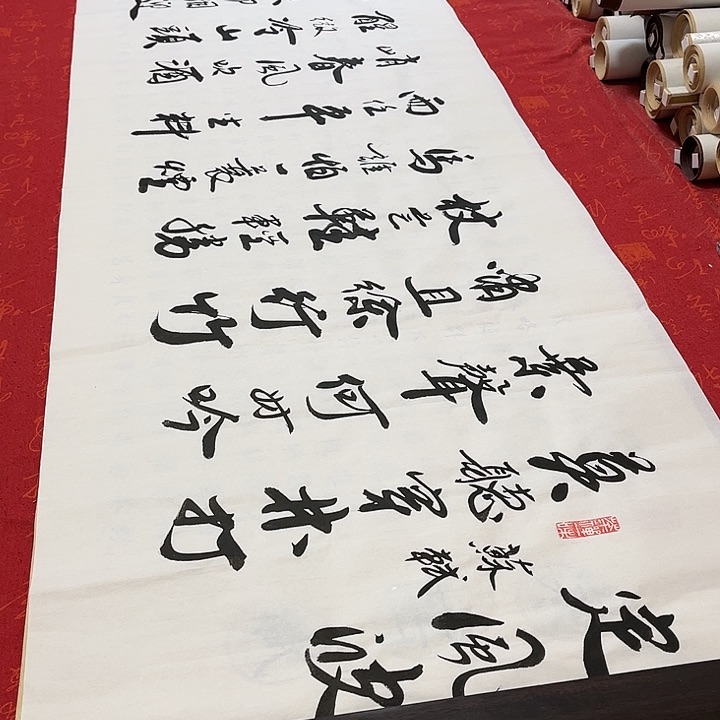 定風波
蘇軾
莫聽穿林打
葉聲何妨吟
嘯且徐行竹
杖芒鞋輕勝
馬誰怕一蓑煙
雨任平生料
峭春風吹酒
醒微冷山頭
相迎